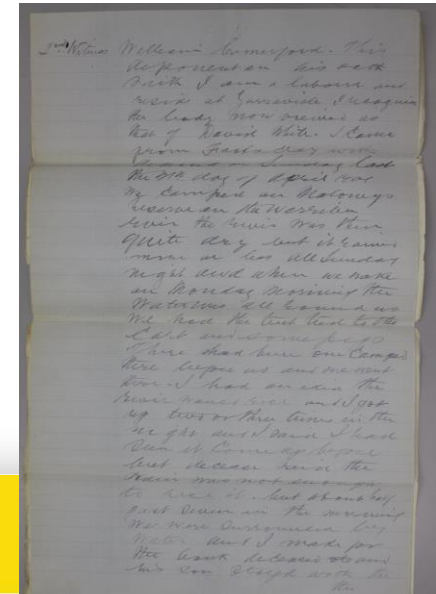 2nd Witness William Comerford. This
deponent on his oath
saith I am a labourer and
reside at I recognise
the body now viewed as
that of David White. I came
from
on Sunday last
the day of April
We camped on Moloney's
reserve on the
river the river was then
quite dry but it rained
more or less all Sunday
night and when we woke
on Monday morning the
water was all round us
We had the tent tied to the
Cart and some
There had been one Camped
there before us and we went
I had an idea the
river would rise and I got
up two or three times in the
night and I said I had
seen it Come up before
but deceased said the
rain was not enough
to it. but about half
past seven in the morning
We were surrounded by
water and I made for
the bank deceased and
his son Joseph with the
the